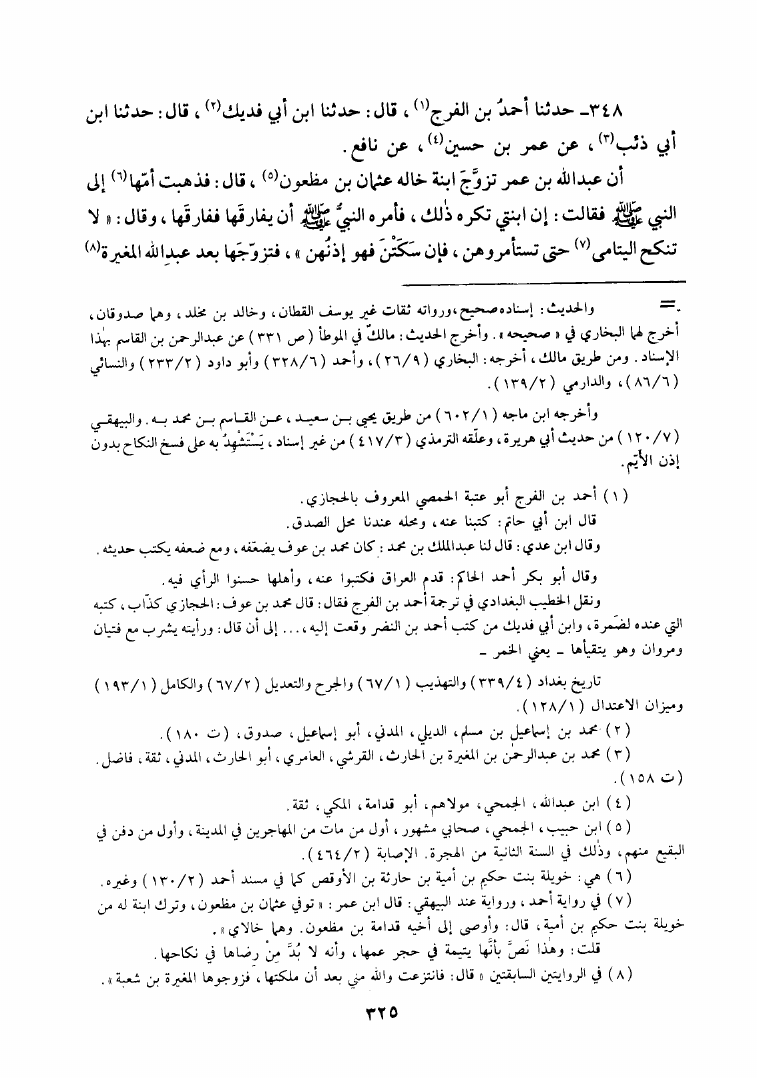 ٣٤٨ـ حدثنا أحمدُ بن الفرج(١) ، قال: حدثنا ابن أبي فديك(٢) ، قال: حدثنا ابن
أبي ذئب(٣) ، عن عمر بن حسين(٤) ، عن نافع .
أن عبدالله بن عمر تزوَّجَ ابنة خاله عثمان بن مظعون(٥) ، قال: فذهبت أمّها(٦) إلى
النبي ﷺ فقالت: إن ابنتي تكره ذٰلك ، فأمره النبيُّ ﷺ أن يفارقَها ففارقَها ، وقال: « لا
تنكح اليتامى(٧) حتى تستأمروهن ، فإن سَكَتْنَ فهو إذنُهن » ، فتزوّجَها بعد عبدِالله المغيرة(٨)
= والحديث: إسناده صحيح، ورواته ثقات غير يوسف القطان، وخالد بن مخلد، وهما صدوقان،
أخرج لهما البخاري في « صحيحه ». وأخرج الحديث: مالكٌ في الموطأ (ص ٣٣١) عن عبدالرحمن بن القاسم بهذا
الإسناد. ومن طريق مالك، أخرجه: البخاري (٢٦/٩)، وأحمد (٣٢٨/٦) وأبو داود (٢٣٣/٢) والنسائي
(٨٦/٦)، والدارمي (١٣٩/٢).
وأخرجه ابن ماجه (٦٠٢/١) من طريق يحيى بن سعيد، عن القاسم بن محمد به. والبيهقي
(١٢٠/٧) من حديث أبي هريرة، وعلّقه الترمذي (٤١٧/٣) من غير إسناد، يَسْتَشْهِدُ به على فسخ النكاح بدون
إذن الأيّم.
(١) أحمد بن الفرج أبو عتبة الحمصي المعروف بالحجازي.
قال ابن أبي حاتم: كتبنا عنه، ومحله عندنا محل الصدق.
وقال ابن عدي: قال لنا عبدالملك بن محمد: كان محمد بن عوف يضعّفه، ومع ضعفه يكتب حديثه.
وقال أبو بكر أحمد الحاكم: قدم العراق فكتبوا عنه، وأهلها حسنوا الرأي فيه.
ونقل الخطيب البغدادي في ترجمة أحمد بن الفرج فقال: قال محمد بن عوف: الحجازي كذّاب، كتبه
التي عنده لضَمرة، وابن أبي فديك من كتب أحمد بن النضر وقعت إليه،... إلى أن قال: ورأيته يشرب مع فتيان
ومروان وهو يتقيأها - يعني الخمر -
تاريخ بغداد (٣٣٩/٤) والتهذيب (٦٧/١) والجرح والتعديل (٦٧/٢) والكامل (١٩٣/١)
وميزان الاعتدال (١٢٨/١).
(٢) محمد بن إسماعيل بن مسلم، الديلي، المدني، أبو إسماعيل، صدوق، (ت ١٨٠).
(٣) محمد بن عبدالرحمٰن بن المغيرة بن الحارث، القرشي، العامري، أبو الحارث، المدني، ثقة، فاضل.
(ت ١٥٨).
(٤) ابن عبدالله، الجمحي، مولاهم، أبو قدامة، المكي، ثقة.
(٥) ابن حبيب، الجمحي، صحابي مشهور، أول من مات من المهاجرين في المدينة، وأول من دفن في
البقيع منهم، وذٰلك في السنة الثانية من الهجرة. الإصابة (٤٦٤/٢).
(٦) هي: خويلة بنت حكيم بن أمية بن حارثة بن الأوقص كما في مسند أحمد (١٣٠/٢) وغيره.
(٧) في رواية أحمد، ورواية عند البيهقي: قال ابن عمر: « توفي عثمان بن مظعون، وترك ابنة له من
خويلة بنت حكيم بن أمية، قال: وأوصى إلى أخيه قدامة بن مظعون. وهما خالاي ».
قلت: وهٰذا نَصَّ بأنَّها يتيمة في حجر عمها، وأنه لا بُدَّ مِنْ رِضاها في نكاحها.
(٨) في الروايتين السابقتين « قال: فانتزعت والله مني بعد أن ملكتها، فزوجوها المغيرة بن شعبة ».
٣٢٥